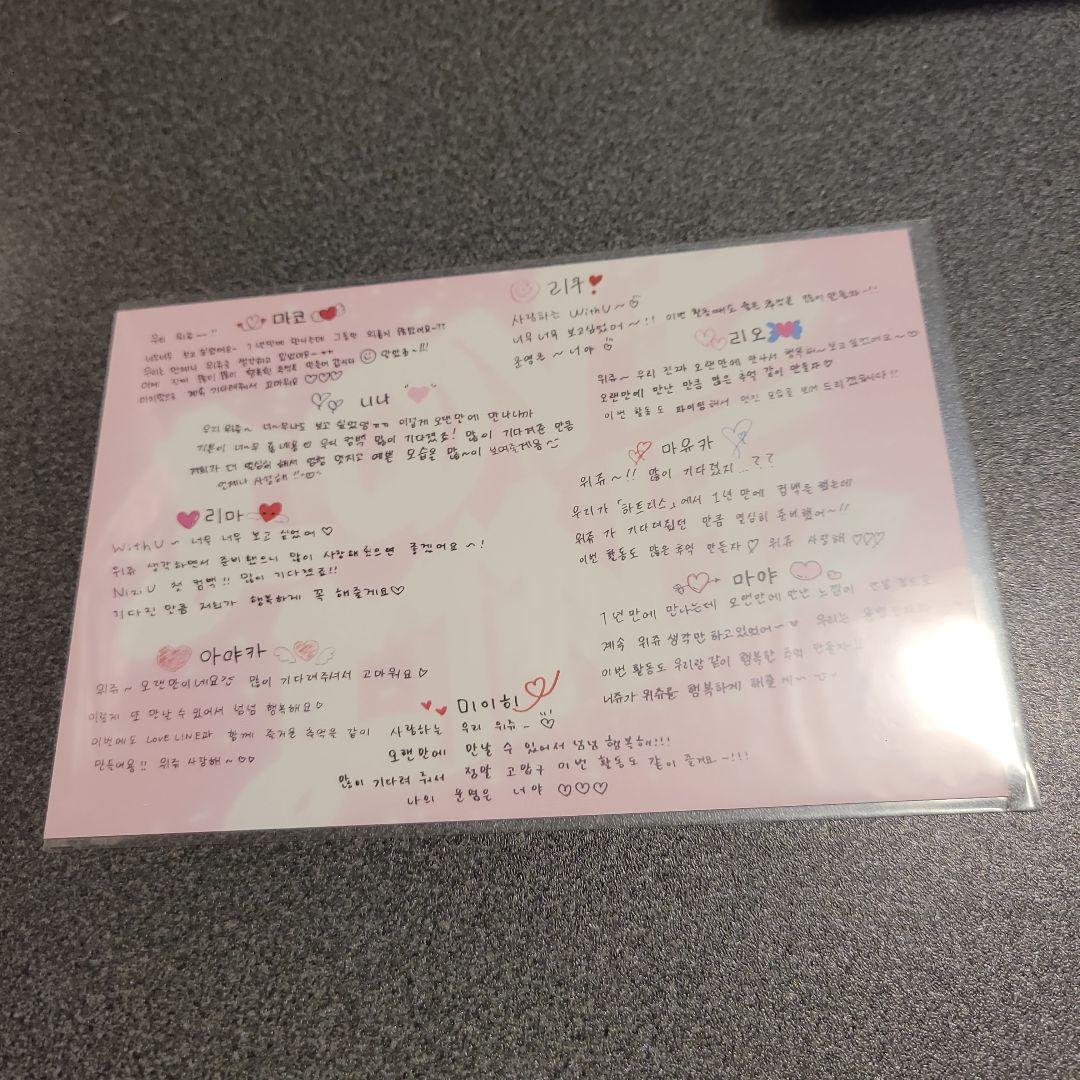 마코
우리 위쥬~~!!
너무너무 보고 싶었어요~ 1년만에 만나는데 그동안 외롭지 않았어요~??
우리는 언제나 위쥬를 생각하고 있었어요~
이제 진짜 많이 많이 행복한 추억을 만들어 갑시다
마지막으로 계속 기다려줘서 고마워요 ♡♡♡
니나
우리 위쥬~ 너~무나도 보고 싶었엉 ㅠㅠ 이렇게 오랜만에 만나니까
기분이 너~무 좋네용 ♡ 우리 컴백 많이 기다렸죠! 많이 기다려준 만큼
저희가 더 열심히 해서 멋지고 예쁜 모습을 많~이 보여줄게용
언제나 사랑해!!
리마
WithU ~ 너무 너무 보고 싶었어 ♡
위쥬 생각하면서 준비했으니 많이 사랑해줬으면 좋겠어요~!
NiziU 첫 컴백!! 많이 기다렸죠!!
기다린 만큼 저희가 행복하게 꼭 해줄게요♡
아야카
위쥬~ 오랜만이네요 많이 기다려주셔서 고마워요♡
이렇게 또 만날 수 있어서 넘넘 행복해요♡
이번에도 LOVE LINE과 함께 즐거운 추억을 같이
만들어용!! 위쥬 사랑해~♡♡
리쿠
사랑하는 WithU~
너무 너무 보고싶었어~!! 이번 활동때도 좋은 추억을 많이 만들자~!!
운명은 ~ 너야
리오
위쥬~ 우리 진짜 오랜만에 만나서 행복해~ 보고싶었어요~♡
오랜만에 만난 만큼 많은 추억 같이 만들자♡
이번 활동도 파이팅해서 멋진 모습을 보여 드리겠습니다!!
마유카
위쥬~!! 많이 기다렸지...??
우리가 「하트리스」에서 1년 만에 컴백을 했는데
위쥬가 기다려줬던 만큼 열심히 준비했어~!!
이번 활동도 많은 추억 만든자♡ 위쥬 사랑해 ♡♡♡
마야
1년만에 만나는데 오랜만에 만난 느낌이
계속 위쥬 생각만 하고있었어~♥ 우리는 운명
이번 활동도 우리랑 같이 행복한 추억 만들자!!
니쥬가 위쥬를 행복하게 해줄게~
미이히
사랑하는 우리 위쥬~
오랜만에 만날 수 있어서 넘넘 행복해!!!
많이 기다려 줘서 정말 고맙구 이번 활동도 같이 즐겨요~!!!
나의 운명은 너야 ♡♡♡